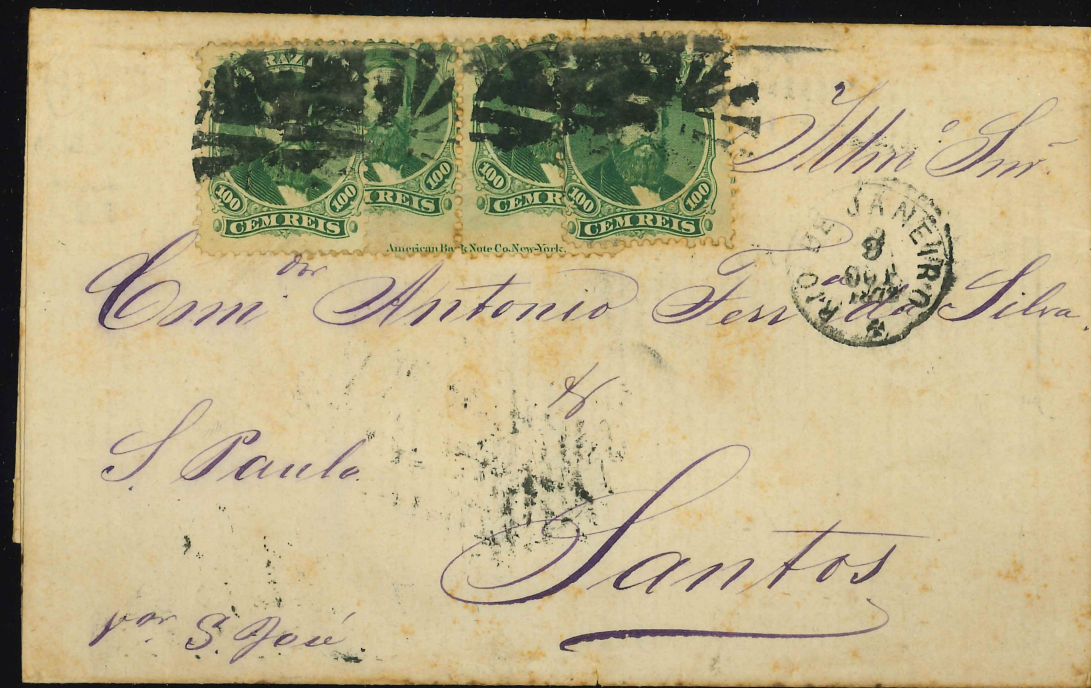 BRAZIL
100 100 100 100 100
CEM REIS REIS CEM REIS
American Bank Note Co. New-York.
Illmo Snr
RIO DE JANEIRO
Com.dor Antonio Ferra da Silva
&
S. Paulo
Santos
por S. José